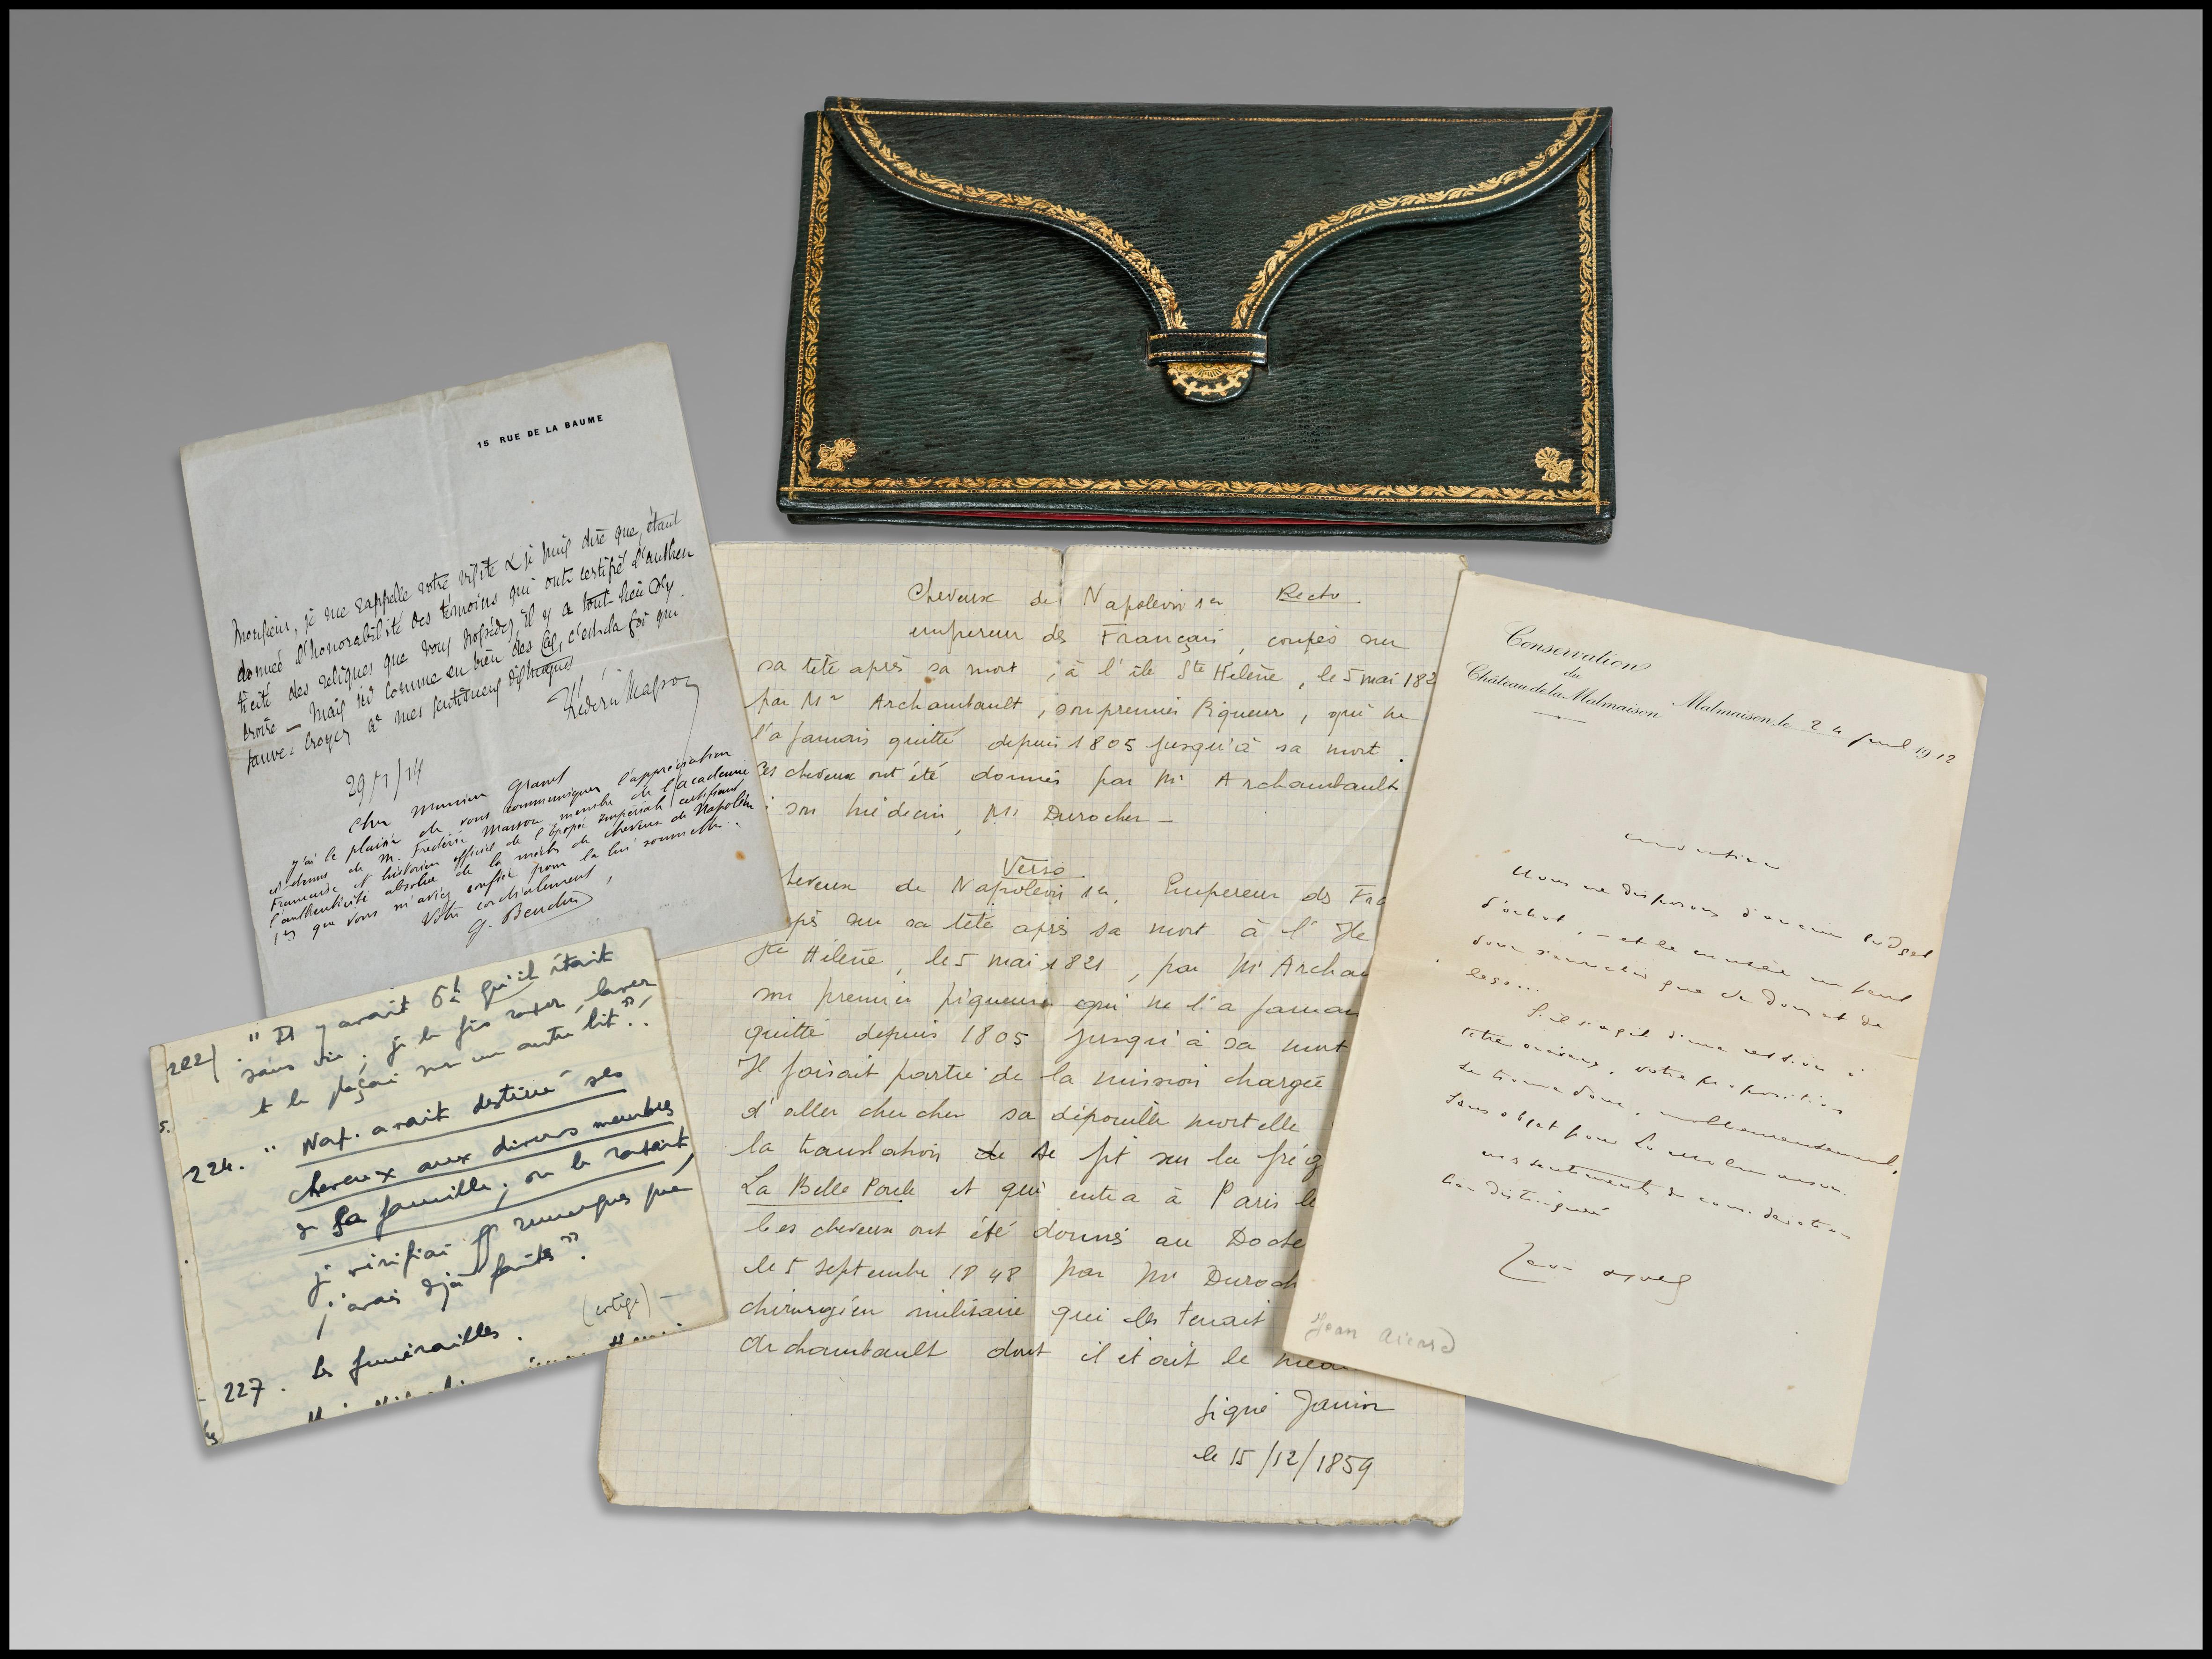 15 RUE DE LA BAUME
Monsieur, je me rappelle votre visite & je puis dire que, étant
donné l'honorabilité des témoins qui ont certifié l'authen
ticité des reliques que vous possédez, il y a tout lieu d'y
croire — Mais ici comme en bien des cas, c'est la foi qui
sauve. Croyez à mes sentiments distingués
Frédéric Masson
29/1/14
Cher Monsieur Granet
j'ai le plaisir de vous communiquer l'appréciation
ci-dessus de M. Frédéric Masson membre de l'Académie
Française et historien officiel de l'épopée impériale certifiant
l'authenticité absolue de la mèche de cheveux de Napoléon
1er que vous m'aviez confiée pour la lui soumettre.
Votre cordialement,
G.
222/. " Il y avait 6h qu'il était
sans vie ; je le fis raser, laver
et le plaçai sur un autre lit ".
224. " Nap. avait destiné ses
cheveux aux divers membres
de sa famille ; on le rasait,
je vérifiai remarques que
j'avais déjà faites ".
(cortège) —
227. les funérailles.
Cheveux de Napoléon 1er Recto
empereur des Français, coupés sur
sa tête après sa mort, à l'île Ste Hélène, le 5 mai 182
par Mr Archambault, son premier Piqueur, qui ne
l'a jamais quitté depuis 1805 jusqu'à sa mort.
Ces cheveux ont été donnés par Mr Archambault
à son médecin, Mr Durocher —
Verso
heveux de Napoléon 1er, Empereur des Fra
pés sur sa tête après sa mort à l'Ile
Ste Hélène, le 5 mai 1821, par Mr Archam
son premier piqueur qui ne l'a jamai
quitté depuis 1805 jusqu'à sa mort
Il faisait partie de la mission chargée
d'aller chercher sa dépouille mortelle
la translation de se fit sur la frég
La Belle Poule et qui entra à Paris le
Ces cheveux ont été donnés au Docte
le 5 septembre 1848 par Mr Duroch
chirurgien militaire qui les tenait
Archambault dont il était le méde
signé Janin
le 15/12/1859
Conservation
du
Château de la Malmaison
Malmaison, le 24 1912
Monsieur
Nous ne disposons d'aucun budget
d'achat, — et le musée ne peut
donc s'enrichir que de dons et de
legs...
S'il s'agit d'une cession à
titre onéreux, votre proposition
se trouve donc, malheureusement,
sans objet pour la Malmaison.
mes sentiments de considération
bien distinguée
Jean Aicard